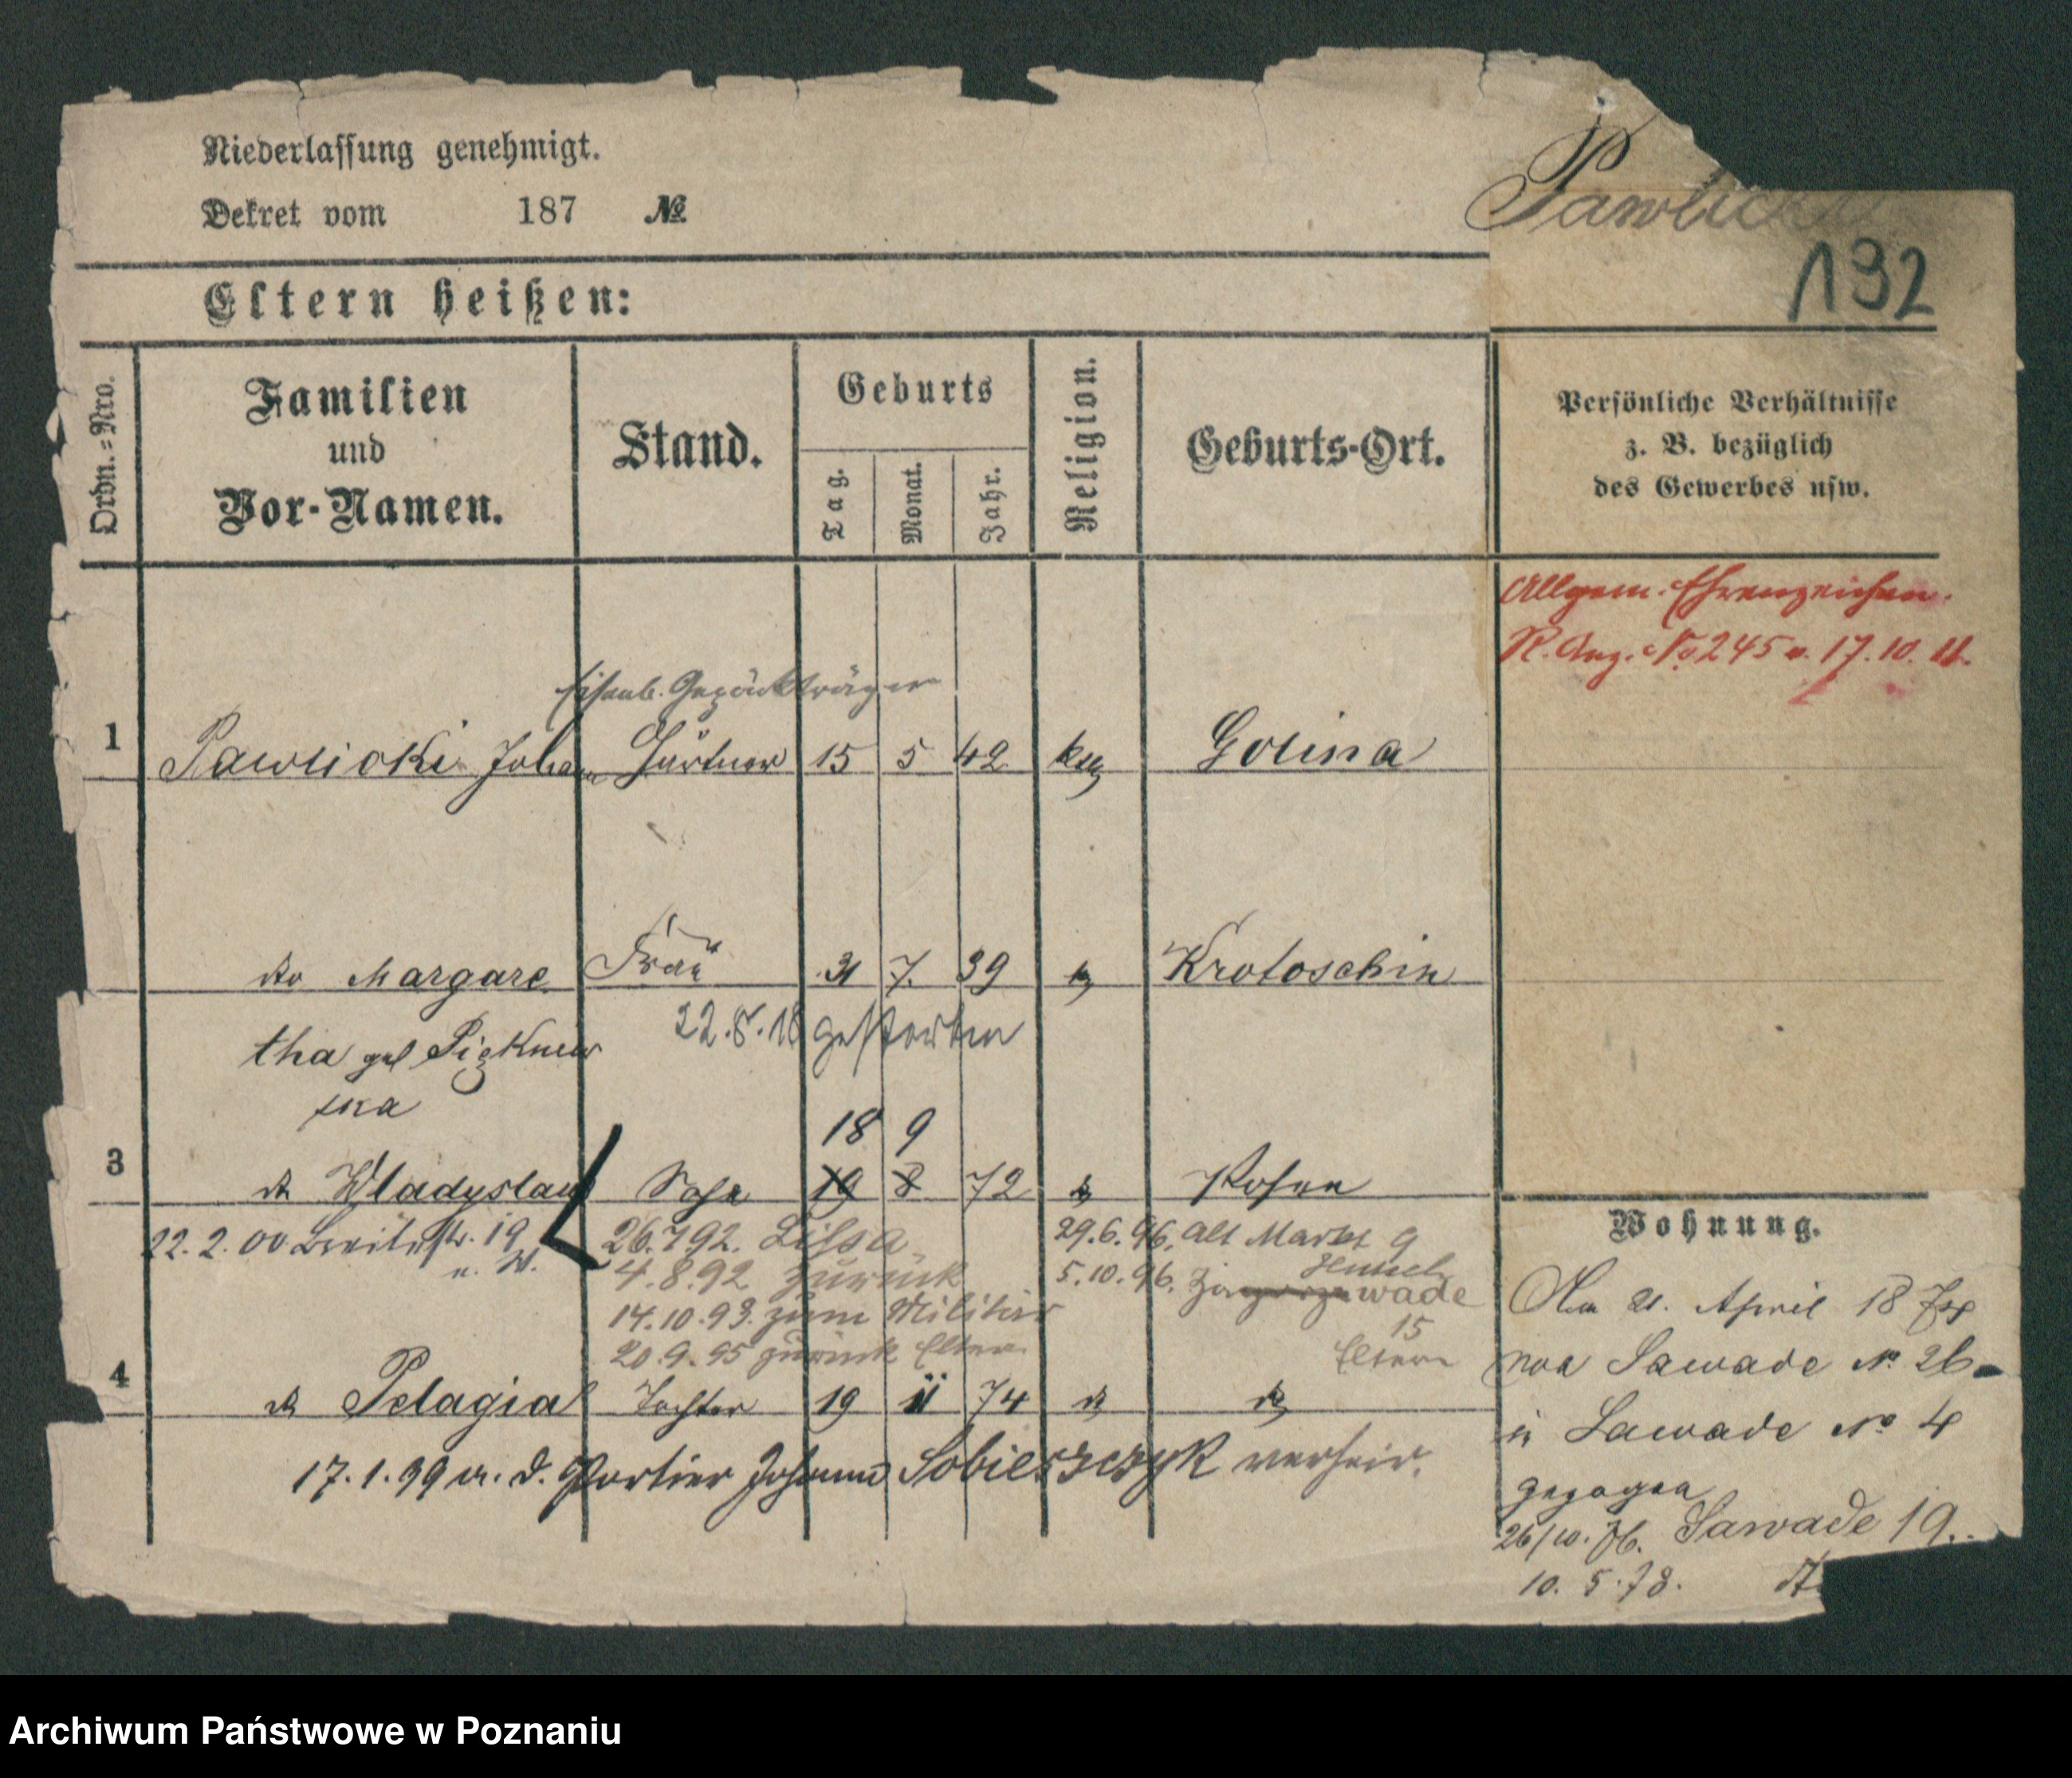 Niederlassung genehmigt.
Dekret vom 187 №
Pawlicki
132
Eltern heißen:
Ordn.=Nro.
Familien
und
Vor-Namen.
Stand.
Geburts
Tag.
Monat.
Jahr.
Religion.
Geburts-Ort.
Persönliche Verhältnisse
z. B. bezüglich
des Gewerbes usw.
Allgem. Ehrenzeichen.
R. Anz. No 245 v. 17.10.11.
Eisenb. Gepäckträger
1 Pawlicki Johann Gärtner 15 5 42 Golina
do Margare Frau 31 7. 39 Krotoschin
22.8.18 gestorben
tha geb
ska
18 9
3 do Wladyslaus Sohn 19 8 72 Posen
22.2.00 19
26.7.92. Lissa
4.8.92 zurück
14.10.93. zum Militär
20.9.95 zurück Eltern
29.6.96. Alt Markt 9
5.10.96. wade
15
Eltern
4 do Pelagia Tochter 19 11 74 do do
17.1.99 m. d. Portier Johann Sobieszczyk verheir.
Wohnung.
Am 21. April 18
von Sawade No 26
in Sawade No 4
gezogen
26/10. 76. Sawade 19.
10. 5. 78.
Archiwum Państwowe w Poznaniu